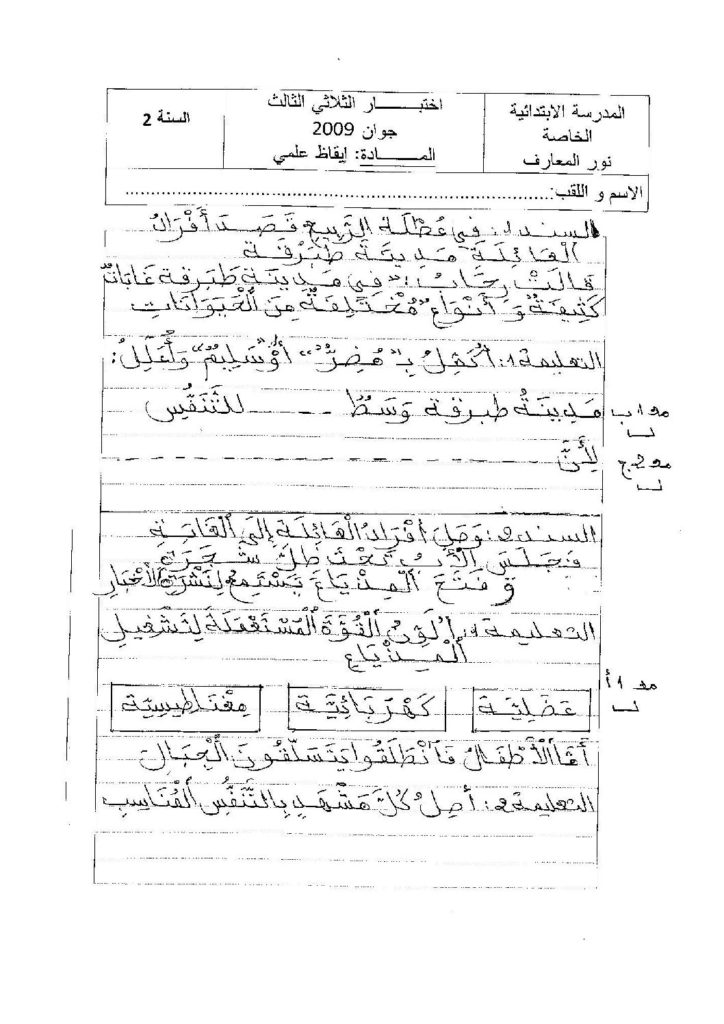 المدرسة الابتدائية
الخاصة
نور المعارف
اختبـــــــار الثلاثي الثالث
جوان 2009
المـــــادة: إيقاظ علمي
السنة 2
الاسم و اللقب:......................................................................
السند 1: في عُطْلَةِ الرَّبِيعِ قَصَدَ أَفْرَادُ
الْعَائِلَةِ مَدِينَةَ طَبَرْقَةَ
قَالَتْ رِحَابُ: "في مَدِينَةِ طَبَرْقَةَ غَابَاتٌ
كَثِيفَةٌ وَ أَنْوَاعٌ مُخْتَلِفَةٌ مِنَ الْحَيَوَانَاتِ
التعليمة 1: أُكْمِلُ بِـ "مُضِرٌّ" أَوْ "سَلِيمٌ" وَأُعَلِّلُ:
مَدِينَةُ طَبَرْقَةَ وَسَطٌ ----- للتَّنَفُّسِ
مع 1 ب
لِأَنَّ -----------------------
مع 2 ج
السند 2: وَصَلَ أَفْرَادُ الْعَائِلَةِ إِلَى الْغَابَةِ
فَجَلَسَ الْأَبُ تَحْتَ ظِلِّ شَجَرَةٍ
وَ فَتَحَ الْمِذْيَاعَ يَسْتَمِعُ لِنَشْرَةِ الْأَخْبَارِ
التعليمة 1: أُلَوِّنُ الْقُوَّةَ الْمُسْتَعْمَلَةَ لِتَشْغِيلِ
الْمِذْيَاعِ
مع 1 أ
عَضَلِيَّة
كَهْرَبَائِيَّة
مِغْنَاطِيسِيَّة
أَمَّا الْأَطْفَالُ فَانْطَلَقُوا يَتَسَلَّقُونَ الْجِبَالَ
التعليمة 2: أَصِلُ كُلَّ مَشْهَدٍ بِالتَّنَفُّسِ الْمُنَاسِبِ